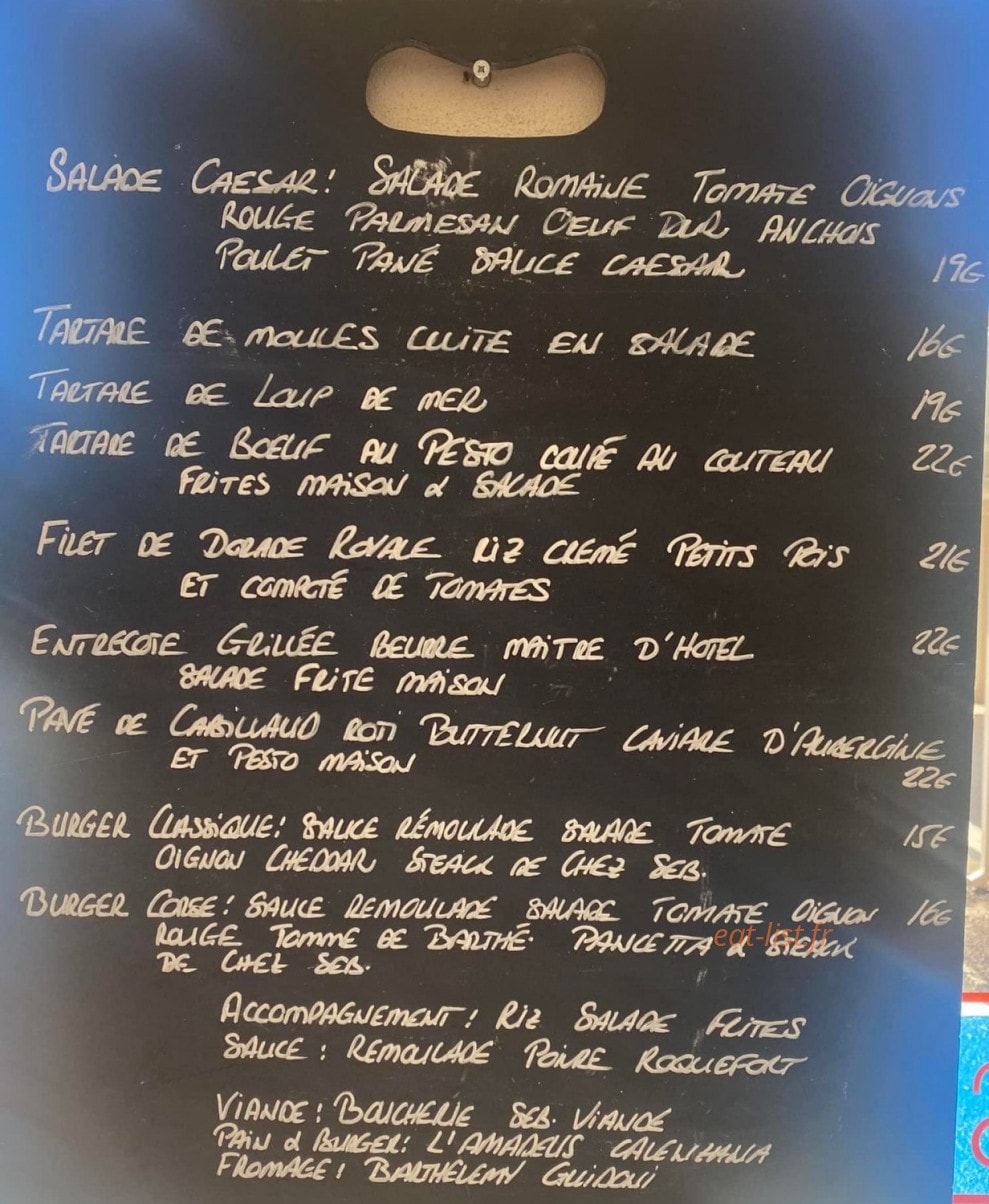 SALADE CAESAR! SALADE ROMAINE TOMATE OIGNONS
ROUGE PARMESAN OEUF DUR ANCHOIS
POULET PANÉ SAUCE CAESAR 19€
TARTARE DE MOULES CUITE EN SALADE 16€
TARTARE DE LOUP DE MER 19€
TARTARE DE BOEUF AU PESTO COUPÉ AU COUTEAU 22€
FRITES MAISON & SALADE
FILET DE DORADE ROYALE RIZ CREMÉ PETITS POIS 21€
ET COMPOTÉ DE TOMATES
ENTRECOTE GRILLÉE BEURRE MAITRE D'HOTEL 22€
SALADE FRITE MAISON
PAVÉ DE CABILLAUD ROTI BUTTERNUT CAVIARE D'AUBERGINE
ET PESTO MAISON 22€
BURGER CLASSIQUE! SAUCE RÉMOULADE SALADE TOMATE 15€
OIGNON CHEDDAR STEACK DE CHEZ SEB.
BURGER CORSE! SAUCE REMOULADE SALADE TOMATE OIGNON 16€
ROUGE TOMME DE BARTHÉ. PANCETTA & STEACK
DE CHEZ SEB.
eat-list.fr
ACCOMPAGNEMENT! RIZ SALADE FRITES
SAUCE: REMOULADE POIVRE ROQUEFORT
VIANDE! BOUCHERIE SEB. VIANDE
PAIN & BURGER! L'AMADEUS CALENZANA
FROMAGE! BARTHELEMY GUIDONI